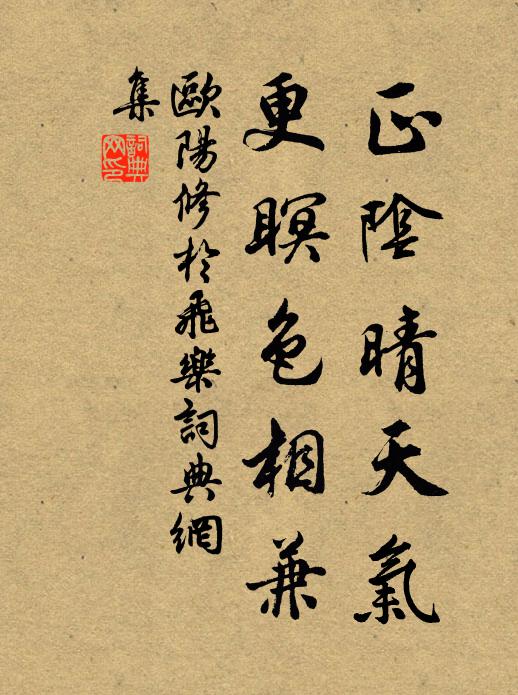 正陰晴天氣
更瞑色相兼
歐陽修於飛樂詞典網
集
詞典網印